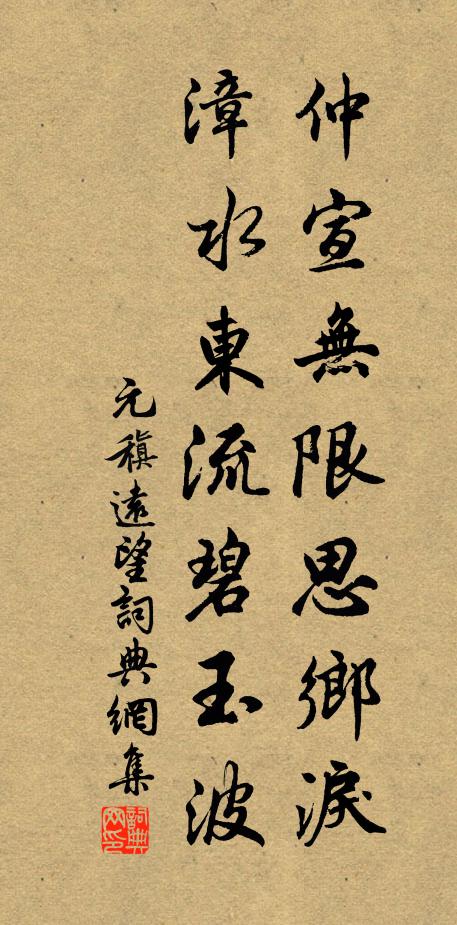 仲宣無限思鄉淚
漳水東流碧玉波
元稹遠望詞典網集
詞典網印